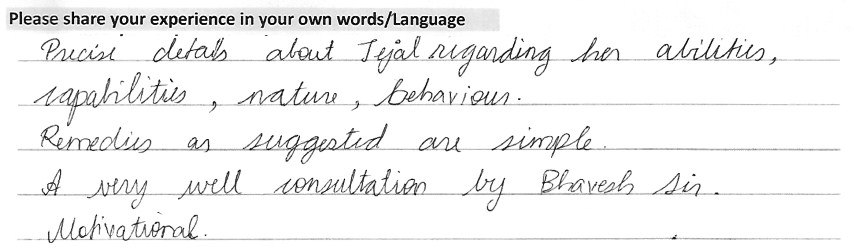 Please share your experience in your own words/Language
Precise details about Tejal regarding her abilities,
capabilities, nature, behaviour.
Remedies as suggested are simple.
A very well consultation by Bhavesh Sir.
Motivational.